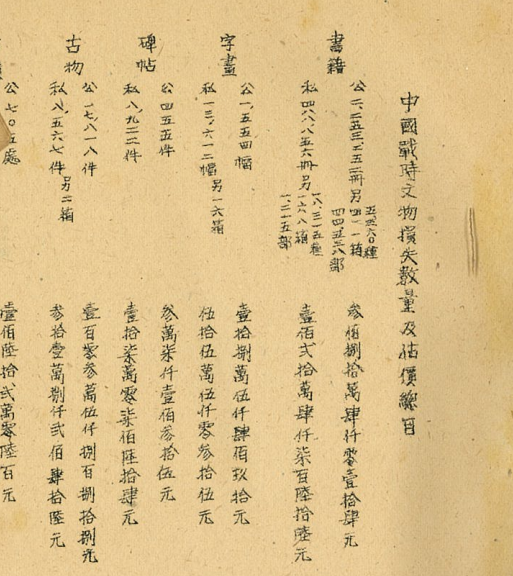 中國戰時文物損失數量及估價總目
書籍
公 二、二五三、二五二冊另五三六〇種 四一一箱 四四五三八部
叁佰捌拾萬肆仟零壹拾肆元
私 四八八、八五六冊另一八、三一五種 一六八箱 一、二一五部
壹佰貳拾萬肆仟柒百陸拾陸元
字畫
公 一、五五四幅
壹拾捌萬伍仟肆佰玖拾元
私 一三、六一二幅另一六箱
伍拾伍萬伍仟零叁拾伍元
碑帖
公 四五五件
叁萬柒仟壹佰叁拾伍元
私 八、九二二件
壹拾柒萬零柒佰陸拾肆元
古物
公 一七、八一八件
壹百零叁萬伍仟捌百捌拾捌元
私 八、五六七件另二箱
叁拾壹萬捌仟貳佰肆拾陸元
公 七〇五處
壹佰陸拾貳萬零陸百元